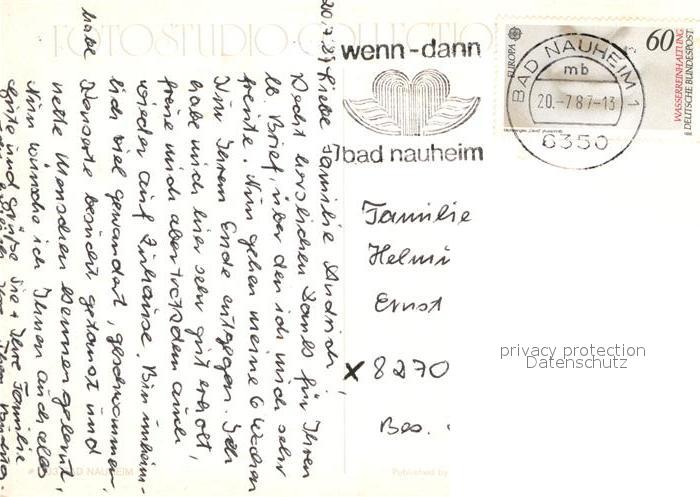 FOTOSTUDIO COLLECTION
20.7.87
Liebe Familie
Recht herzlichen Dank für Ihren
lb. Brief, über den ich mich sehr
freute. Nun gehen meine 6 Wochen
Ihrem Ende entgegen. Ich
habe mich hier sehr gut erholt,
freue mich aber trotzdem auch
wieder auf Zuhause. Bin
lich viel gewandert, geschwommen,
habe Konzerte besucht getanzt und
nette Menschen kennengelernt.
Nun wünsche ich Ihnen auch alles
Gute und grüße Sie + Ihre Familie
wenn-dann
bad nauheim
BAD NAUHEIM 1
mb
20.-7.87-13
6350
EUROPA
60
WASSERREINHALTUNG
DEUTSCHE BUNDESPOST
Familie
Helmu
Ernst
x 8270
Bes.
privacy protection
Datenschutz
BAD NAUHEIM
Published by